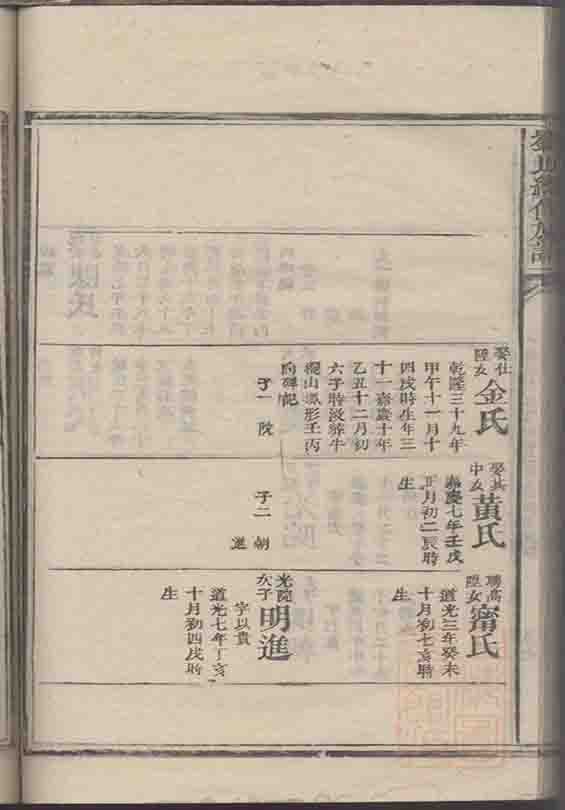 娶仕
陞女
金氏
乾隆三十九年
甲午十一月十
四戌時生年三
十一嘉慶十年
乙丑十二月初
六子時歿葬牛
欄山 形壬丙
向碑記
子一 院
娶共
中女
黃氏
嘉慶七年壬戌
正月初二辰時
生
子二 朝
進
聘高
陞女
甯氏
道光三年癸未
十月初七亥時
生
光院
次子
明進
字以貴
道光七年丁亥
十月初四戌時
生